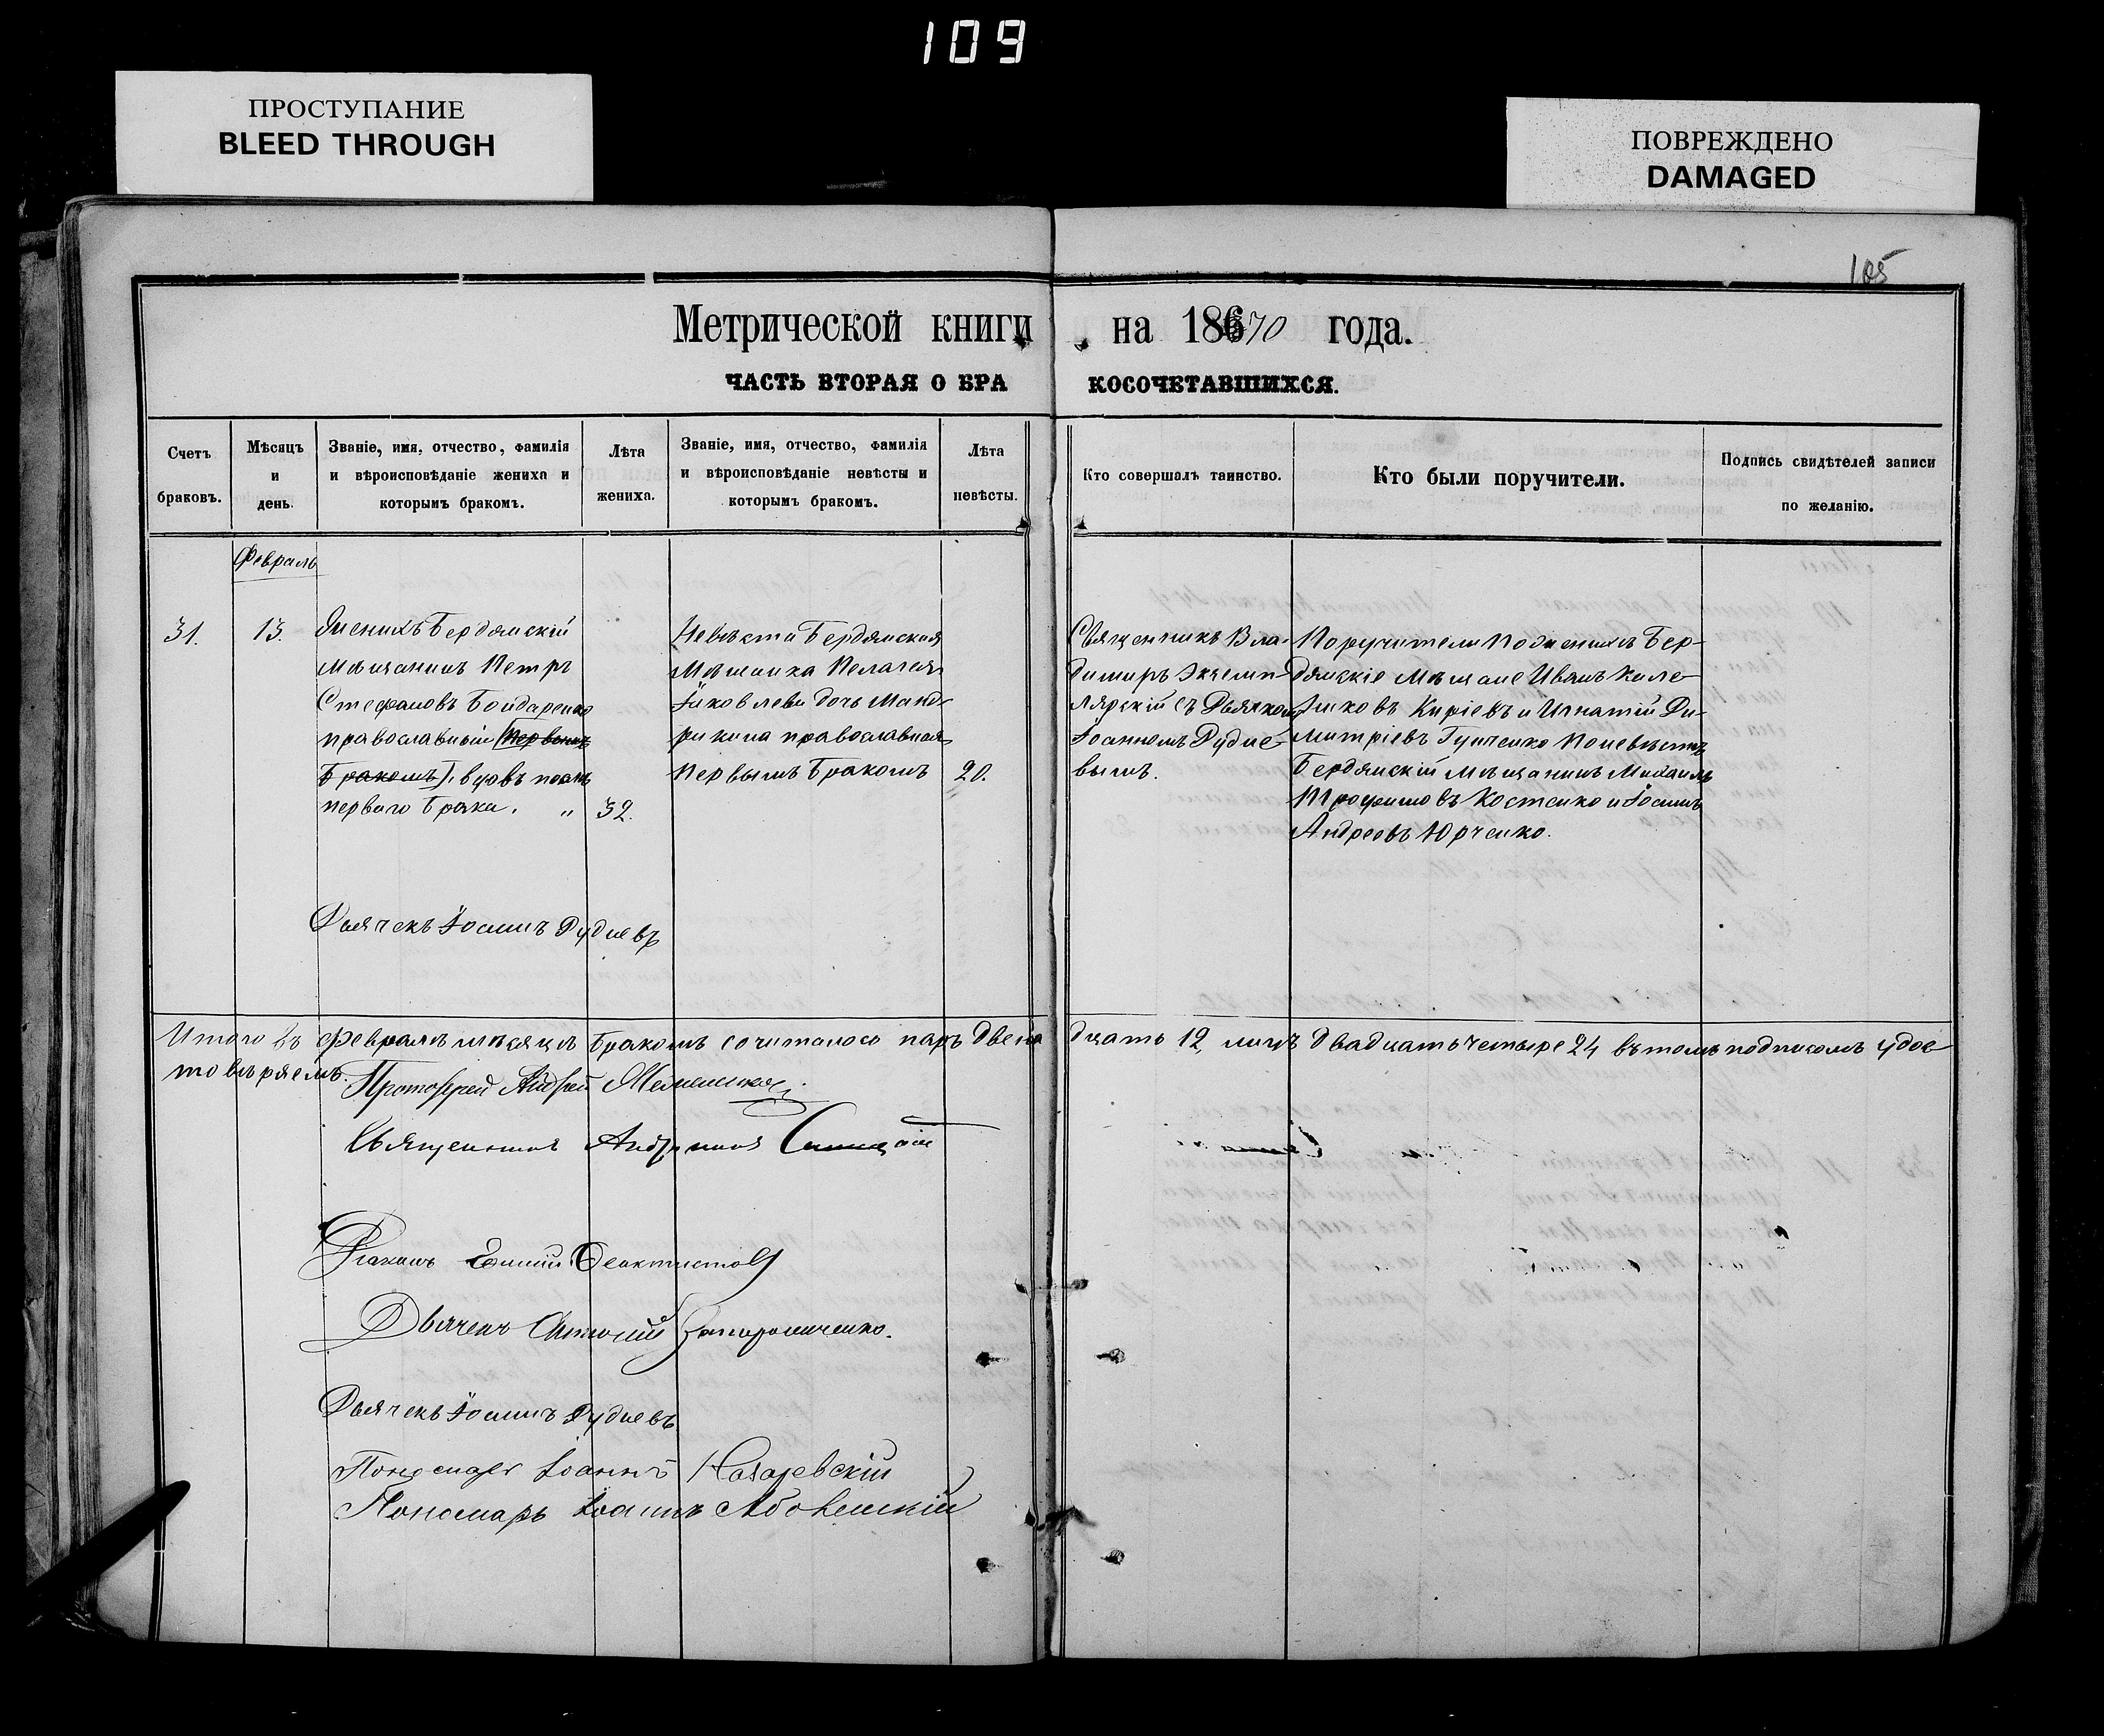 109
ПРОСТУПАНИЕ
BLEED THROUGH
ПОВРЕЖДЕНО
DAMAGED
105
Метрической книги на 1870 года.
ЧАСТЬ ВТОРАЯ О БРАКОСОЧЕТАВШИХСЯ.
Счетъ браковъ.
Мѣсяцъ и день.
Званіе, имя, отчество, фамилія
и вѣроисповѣданіе жениха и
которымъ бракомъ.
Лѣта жениха.
Званіе, имя, отчество, фамилія
и вѣроисповѣданіе невѣсты и
которымъ бракомъ.
Лѣта невѣсты.
Кто совершалъ таинство.
Кто были поручители.
Подпись свидѣтелей записи
по желанію.
Февраль
31.
13.
Женихъ Бердянскій
мѣщанинъ Петръ
Стефановъ Бондаренко
православный (первымъ
бракомъ), вдовъ послѣ
перваго брака. "
32.
Невѣста Бердянская
мѣщанка Пелагея
Яковлева дочь Манд-
рикина православная
первымъ бракомъ
20.
Священникъ Вла-
димиръ Экземп-
лярскій съ Дьячкомъ
Іоанномъ Рудне-
вымъ.
Поручители по женихѣ Бер-
дянскіе мѣщане Иванъ
Киріевъ и Игнатій Ди-
митріевъ по невѣстѣ
Бердянскій мѣщанинъ Михаилъ
Трофимовъ Костенко и Іоаннъ
Андреевъ Юрченко.
Дьячекъ Іоаннъ Рудневъ
Итого въ февралѣ мѣсяцѣ бракомъ сочеталось паръ двенадцать 12, лицъ двадцать четыре 24 въ томъ подписомъ удос-
товѣряемъ.
Протоіерей Андрей
Священникъ
Діаконъ Феоктистовъ
Дьячекъ Антоній
Дьячекъ Іоаннъ Рудневъ
Пономарь Іоаннъ Назаревскій
Пономарь Іоаннъ